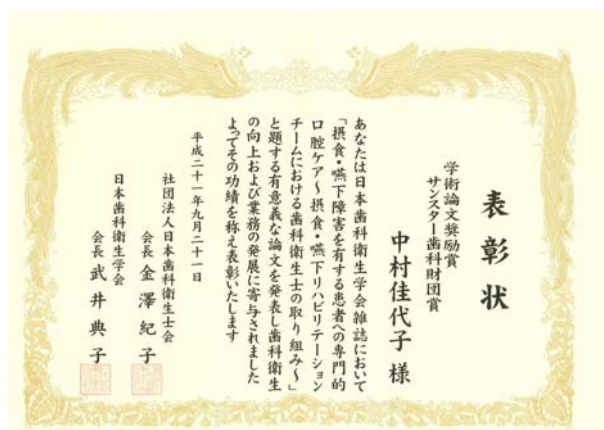 表彰状
学術論文奨励賞
サンスター歯科財団賞
中村佳代子 様
あなたは日本歯科衛生学会雑誌において
「摂食・嚥下障害を有する患者への専門的
口腔ケア～摂食・嚥下リハビリテーション
チームにおける歯科衛生士の取り組み～」
と題する有意義な論文を発表し歯科衛生
の向上および業務の発展に寄与されました
よってその功績を称え表彰いたします
平成二十一年九月二十一日
社団法人日本歯科衛生士会
会長 金澤紀子
日本歯科衛生学会
会長 武井典子